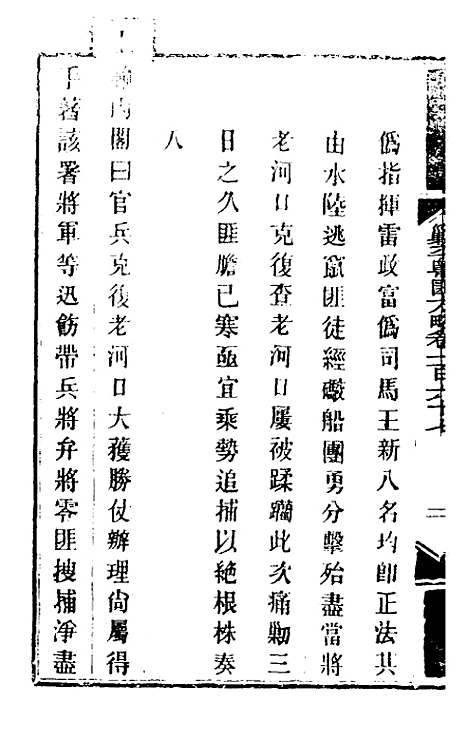 偽指揮雷政富偽司馬王新八名均卽正法其
由水陸逃竄匪徒經礮船團勇分擊殆盡當將
老河口克復查老河口屢被蹂躪此次痛勦三
日之久匪膽已寒亟宜乘勢追捕以絕根株奏
入
內閣曰官兵克復老河口大獲勝仗辦理尚屬得
手著該署將軍等迅飭帶兵將弁將零匪搜捕淨盡
方略卷一百六十七
二